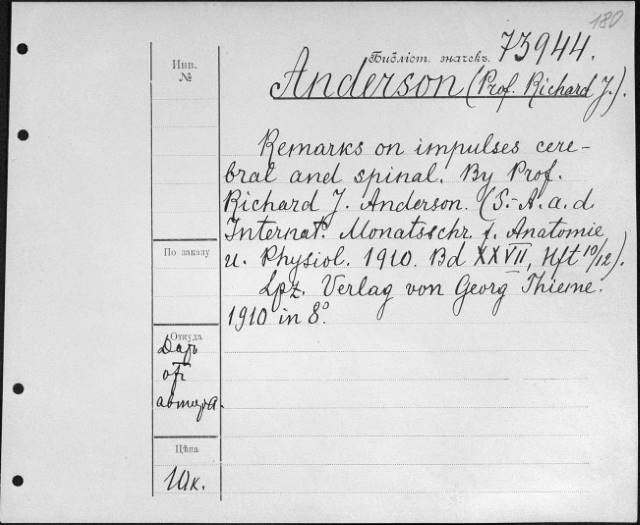 180
Библіст. значекъ. 73944.
Инв.
№
Anderson (Prof. Richard J.).
Remarks on impulses cere-
bral and spinal. By Prof.
Richard J. Anderson. (S.-A. a. d
Internat. Monatsschr. f. Anatomie
u. Physiol. 1910. Bd XXVII, Hft 10/12).
Lpz. Verlag von Georg Thieme.
1910 in 8°
По заказу
Откуда
Даръ
отъ
автора.
Цѣна